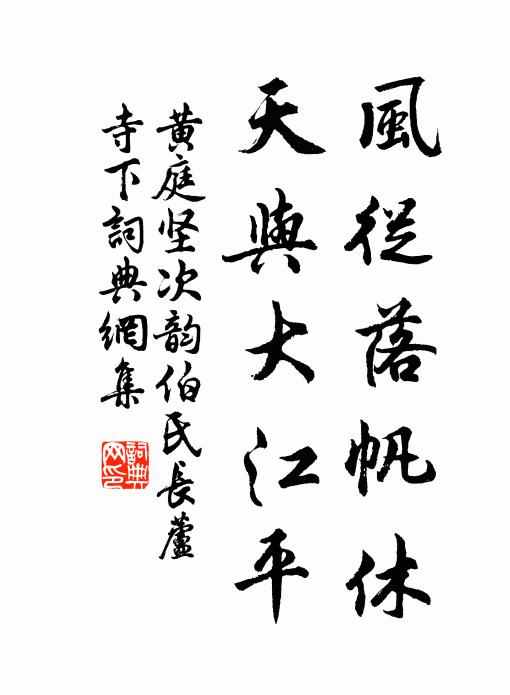 風從落帆休
天與大江平
黄庭坚次韵伯氏長蘆
寺下詞典網集
詞典網印